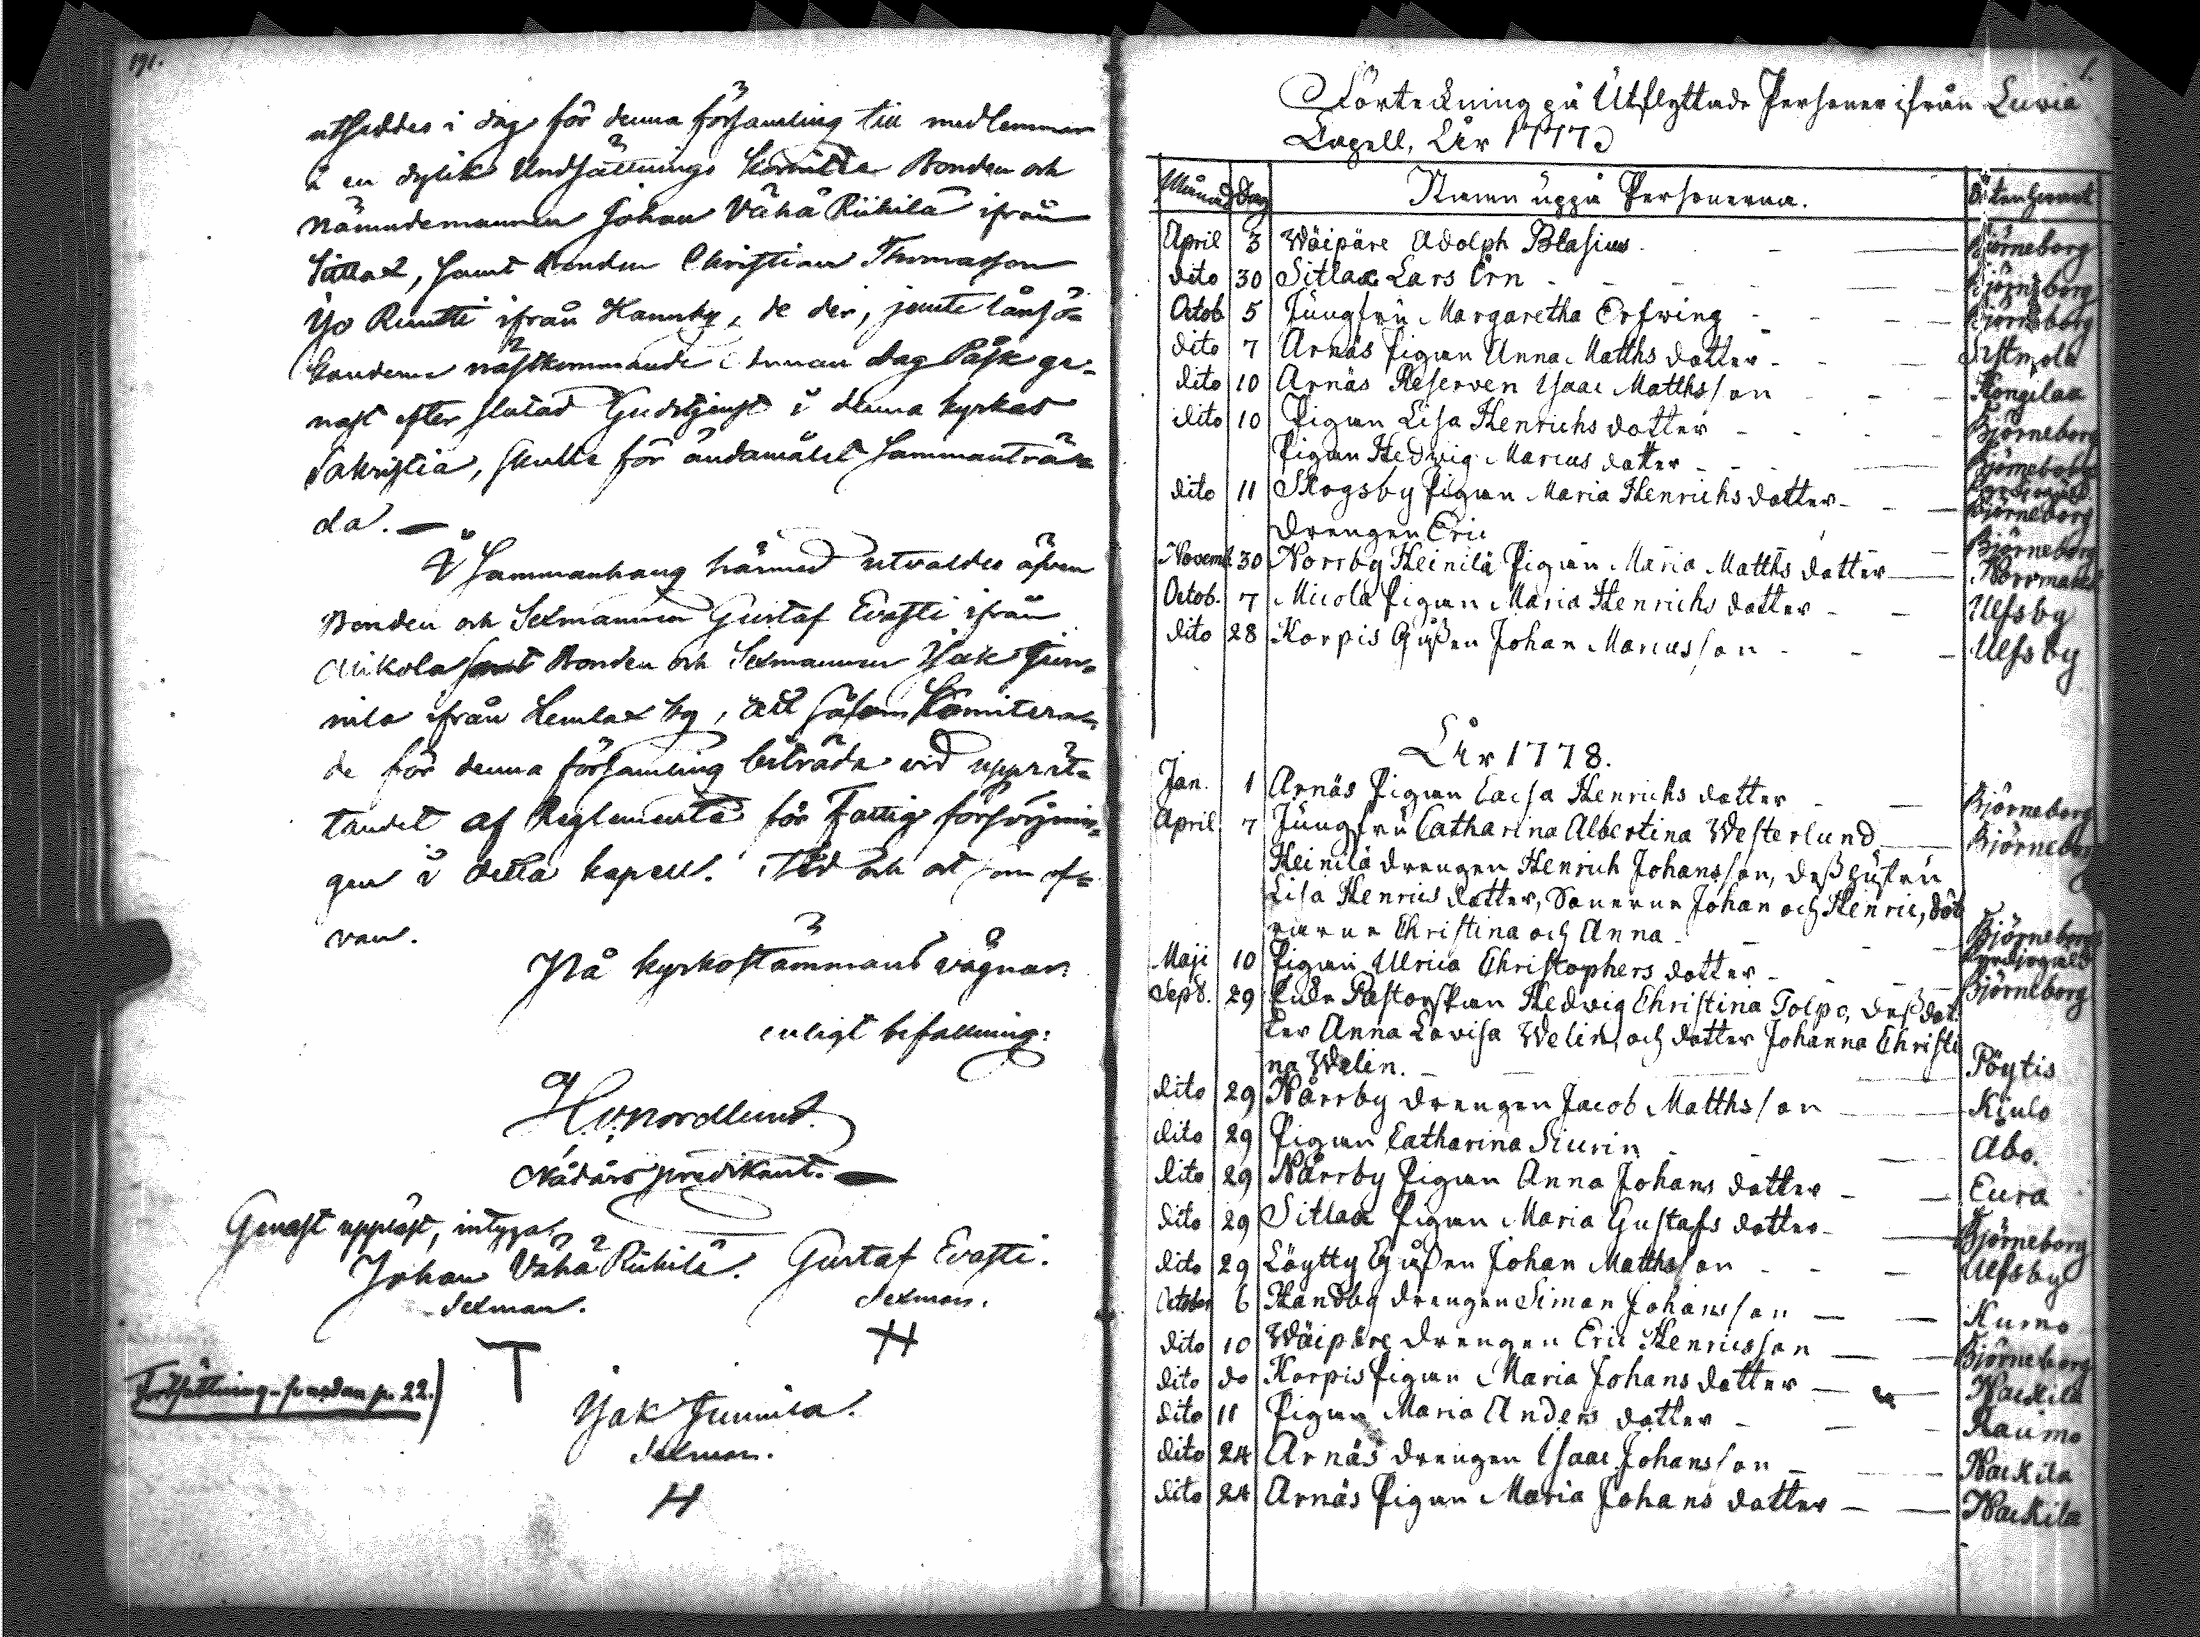 191.
utseddes i dag för denna församling till medlemmar
i en dylik Undsättnings Komitte Bonden och
Nämndemannen Johan Vähä Riihilä ifrån
Sitlax, samt Bonden Christian Thomasson
Yo Runtti ifrån Hannby, de der, jemte
nästkommande annan dag Påsk ge-
nast efter slutad Gudstjenst i denna kyrkas
Sakristia, skulle för ändamålet sammanträ-
da.
I Sammanhang härmed utvaldes äfven
Bonden och Sexmannen Gustaf Evasti ifrån
Mikola samt Bonden och Sexmannen Isak Junn-
nila ifrån Lemlax by, att såsom Komitera-
de för denna församling biträda vid upprät-
tandet af Reglemente för Fattig försörjnin-
gen i detta kapell. Tid och ort som of-
van.
På kyrkostämmans vägnar:
enligt befallning:
H. v. Nordlund.
Nådårs predikant.
Genast uppläst, intygas
Johan Vähä Riihilä. Gustaf Evasti.
Sexman. Sexman.
Fortsättning fr. nedan p. 22.)
Isak Junnila.
Sexman.
1.
Förteckning på Utflyttade Personer ifrån Luvia
Capell, År 1777
Månad Dag Namn uppå Personerna. Orten hvart
April 3 Wäipäre Adolph Blasius Björneborg
dito 30 Sitlax Lars Örn Björneborg
Octob 5 Jungfru Margaretha Erfwing Björneborg
dito 7 Arnäs Pigan Anna Matths dotter Sastmola
dito 10 Arnäs Reserven Isaac Matthsson Kongilax
dito 10 Pigan Lisa Henrichs dotter Björneborg
Pigan Hedvig Marcus dotter Björneborg
dito 11 Skogsby Pigan Maria Henrichs dotter Björneborg
Drengen Eric Björneborg
Novemb. 30 Norrby Heinilä Pigan Maria Matths dotter Norrmark
Octob. 7 Micola Pigan Maria Henrichs dotter Ulfsby
dito 28 Korpis Gossen Johan Marcusson Ulfsby
År 1778.
Jan. 1 Arnäs Pigan Caisa Henrichs dotter Björneborg
April 7 Jungfru Catharina Albertina Westerlund Björneborg
Heinilä Drengen Henrich Johansson, dess hustru
Lisa Henrics dotter, Sönerne Johan och Henric, döt
rarne Christina och Anna Björneborg
Maji 10 Pigan Ulrica Christophers dotter Björneborg
Sept. 29 Enke Pastorskan Hedwig Christina Polpo, dess dot
ter Anna Lovisa Welin, och dotter Johanna Christi
na Welin. Pöytis
dito 29 Norrby Drengen Jacob Matthsson Kjulo
dito 29 Pigan Catharina Siurin Åbo.
dito 29 Norrby Pigan Anna Johans dotter Eura
dito 29 Sitlax Pigan Maria Gustafs dotter Björneborg
dito 29 Löytty Gossen Johan Matthsson Ulfsby
October 6 Handby Drengen Simon Johansson Kumo
dito 10 Wäipäre Drengen Eric Henricsson Björneborg
dito do Korpis Pigan Maria Johans dotter Nackila
dito 11 Pigan Maria Anders dotter Raumo
dito 24 Arnäs Drengen Isaac Johansson Nackila
dito 24 Arnäs Pigan Maria Johans dotter Nackila